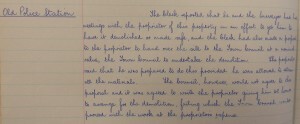 Old Police Station.
The Clerk reported that he and the Surveyor had had
meetings with the proprietor of this property in an effort to get him to
have it demolished or made safe, and the Clerk had also made a proposal
to the proprietor to hand over the site to the Town Council at a nominal
value, the Town Council to undertake the demolition. The proprietor
said that he was prepared to do this provided he was allowed to
the materials. The Council, however, would not agree to this
proposal and it was agreed to write the proprietor giving him
to arrange for the demolition, failing which the Town Council would
proceed with the work at the proprietors expense.